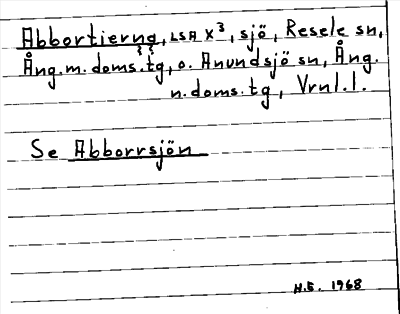 Abbortierna, LSA X³, sjö, Resele sn,
Ång.m.doms.tg, o. Anundsjö sn, Ång.
n.doms.tg, Vrnl.l.
Se Abborrsjön
H.S. 1968